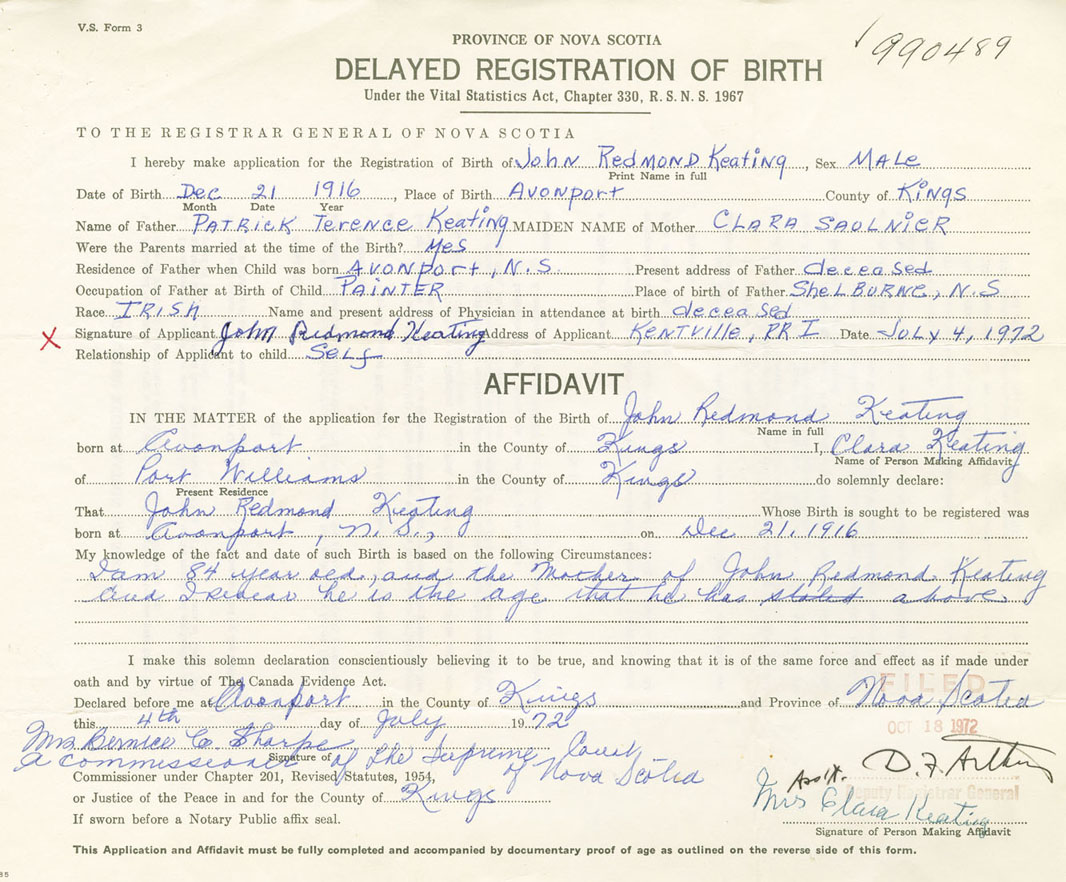 V.S. Form 3
990489
PROVINCE OF NOVA SCOTIA
DELAYED REGISTRATION OF BIRTH
Under the Vital Statistics Act, Chapter 330, R. S. N. S. 1967
TO THE REGISTRAR GENERAL OF NOVA SCOTIA
I hereby make application for the Registration of Birth of John Redmond Keating, Sex Male
Print Name in full
Date of Birth Dec 21 1916, Place of Birth Avonport County of Kings
Month Date Year
Name of Father Patrick Terence Keating MAIDEN NAME of Mother CLARA SAULNIER
Were the Parents married at the time of the Birth? Yes
Residence of Father when Child was born Avonport, N.S. Present address of Father deceased
Occupation of Father at Birth of Child PAINTER Place of birth of Father Shelburne, N.S
Race IRISH Name and present address of Physician in attendance at birth deceased
X Signature of Applicant John Redmond Keating Address of Applicant Kentville, RR I Date July 4, 1972
Relationship of Applicant to child Self
AFFIDAVIT
IN THE MATTER of the application for the Registration of the Birth of John Redmond Keating
Name in full
born at Avonport in the County of Kings I, Clara Keating
Name of Person Making Affidavit
of Port Williams in the County of Kings do solemnly declare:
Present Residence
That John Redmond Keating Whose Birth is sought to be registered was
born at Avonport, N.S., on Dec 21, 1916
My knowledge of the fact and date of such Birth is based on the following Circumstances:
I am 84 year old, and the Mother of John Redmond Keating
and I swear he is the age that he has stated above.
I make this solemn declaration conscientiously believing it to be true, and knowing that it is of the same force and effect as if made under
oath and by virtue of The Canada Evidence Act.
FILED
Declared before me at Avonport in the County of Kings and Province of Nova Scotia
this 4th day of July 1972
OCT 18 1972
Mrs Bernice C. Sharpe
A commissioner of the Supreme Court
Signature of
of Nova Scotia
Commissioner under Chapter 201, Revised Statutes, 1954,
D. F.
Asst. Deputy Registrar General
or Justice of the Peace in and for the County of Kings
Mrs Clara Keating
If sworn before a Notary Public affix seal.
Signature of Person Making Affidavit
This Application and Affidavit must be fully completed and accompanied by documentary proof of age as outlined on the reverse side of this form.
85